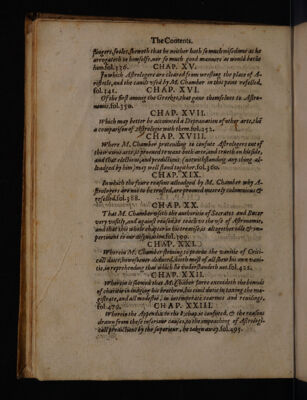 The Contents.
singers, fooles, sheweth that he neither hath so much wisedome as he
arrogateth to himselfe, nor so much good manners as would beche
him. fol. 326.
CHAP. XV.
In which Astrologers are cleared from wresting the place of A-
ristotle, and the cauils vsed by M. Chamber in this point refelled,
fol. 341.
CHAP. XVI.
Of the first among the Greekes, that gaue themselues to Astro-
nomie, fol. 350.
CHAP. XVII.
Which may better be accounted a Deprauation of other arts, thē
a comparison of Astrologie with them. fol. 352.
CHAP. XVIII.
Where M. Chamber pretending to confute Astrologers out of
their owne arts, is prooued to want both arte, and truth on his side,
and that elections, and predictions (notwithstanding any thing al-
leadged by him) may well stand together. fol. 360.
CHAP. XIX.
In which the foure reasons alleadged by M. Chamber why A-
strologers are not to be trusted, are prooued meerely calumnious &
refelled. fol. 388.
CHAP. XX.
That M. Chamber vseth the authoritie of Socrates and
very vnfitly, and against reason, to reach to the vse of Astronomie,
and that this whole chapter in his treatise, is altogether idle & im-
pertinent to our disputation. fol. 399.
CHAP. XXI.
Wherein M. Chamber striuing to prooue the vanitie of Criti-
call daies, howsoeuer deduced, doth most of all shew his own vani-
tie, in reprehending that which he vnderstandeth not. fol. 421.
CHAP. XXII.
Wherein is shewed that M. Chāber farre exceedeth the bounds
of charitie in iudging his brethren, his ciuil dutie in taxing the ma-
gistrate, and all modestie, in intemperate scornes and reuilings,
fol. 479.
CHAP. XXIII.
Wherein the Appendix to the Bishop, is confuted, & the reasons
drawn from these inferiour causes, to the impeaching of Astrologi-
call predictions by the superiour, be taken away. fol. 495.